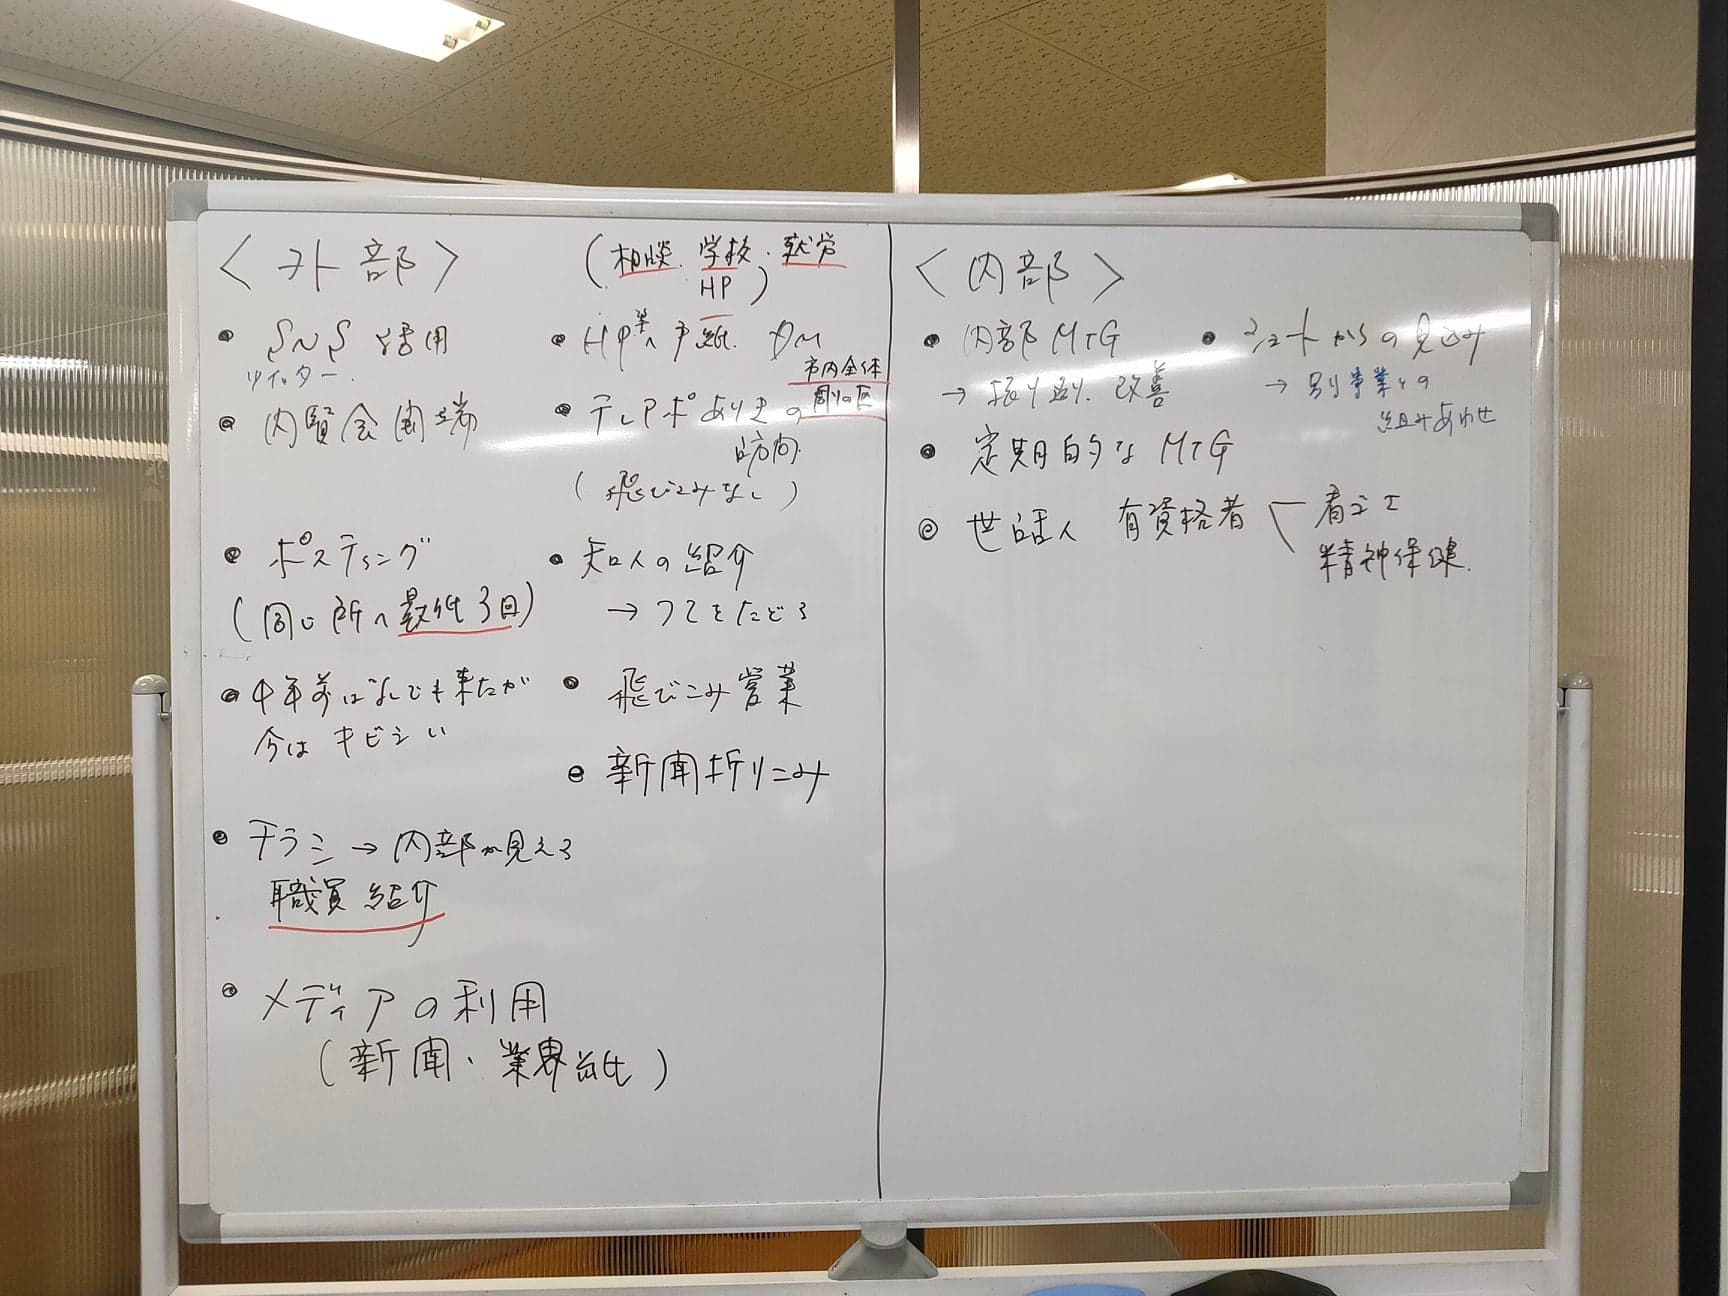 〈外部〉
(相談、学校・就労
HP)
・SNS活用
ツイッター
・内覧会
・ポスティング
(同じ所へ最低3回)
・4年前は でも来たが
今はキビシい
・チラシ→内部が見える
職員紹介
・メディアの利用
(新聞、業界紙)
・HP等へ手紙、DM
市内全体
周りの区
・テレアポありきの
訪問
(飛びこみなし)
・知人の紹介
→ツてをたどる
・飛びこみ営業
・新聞折りこみ
〈内部〉
・内部MTG
→振り返り、改善
・定期的なMTG
・世話人 有資格者
看ゴシ
精神保健
・ショートからの見込み
→別事業との
組みあわせ